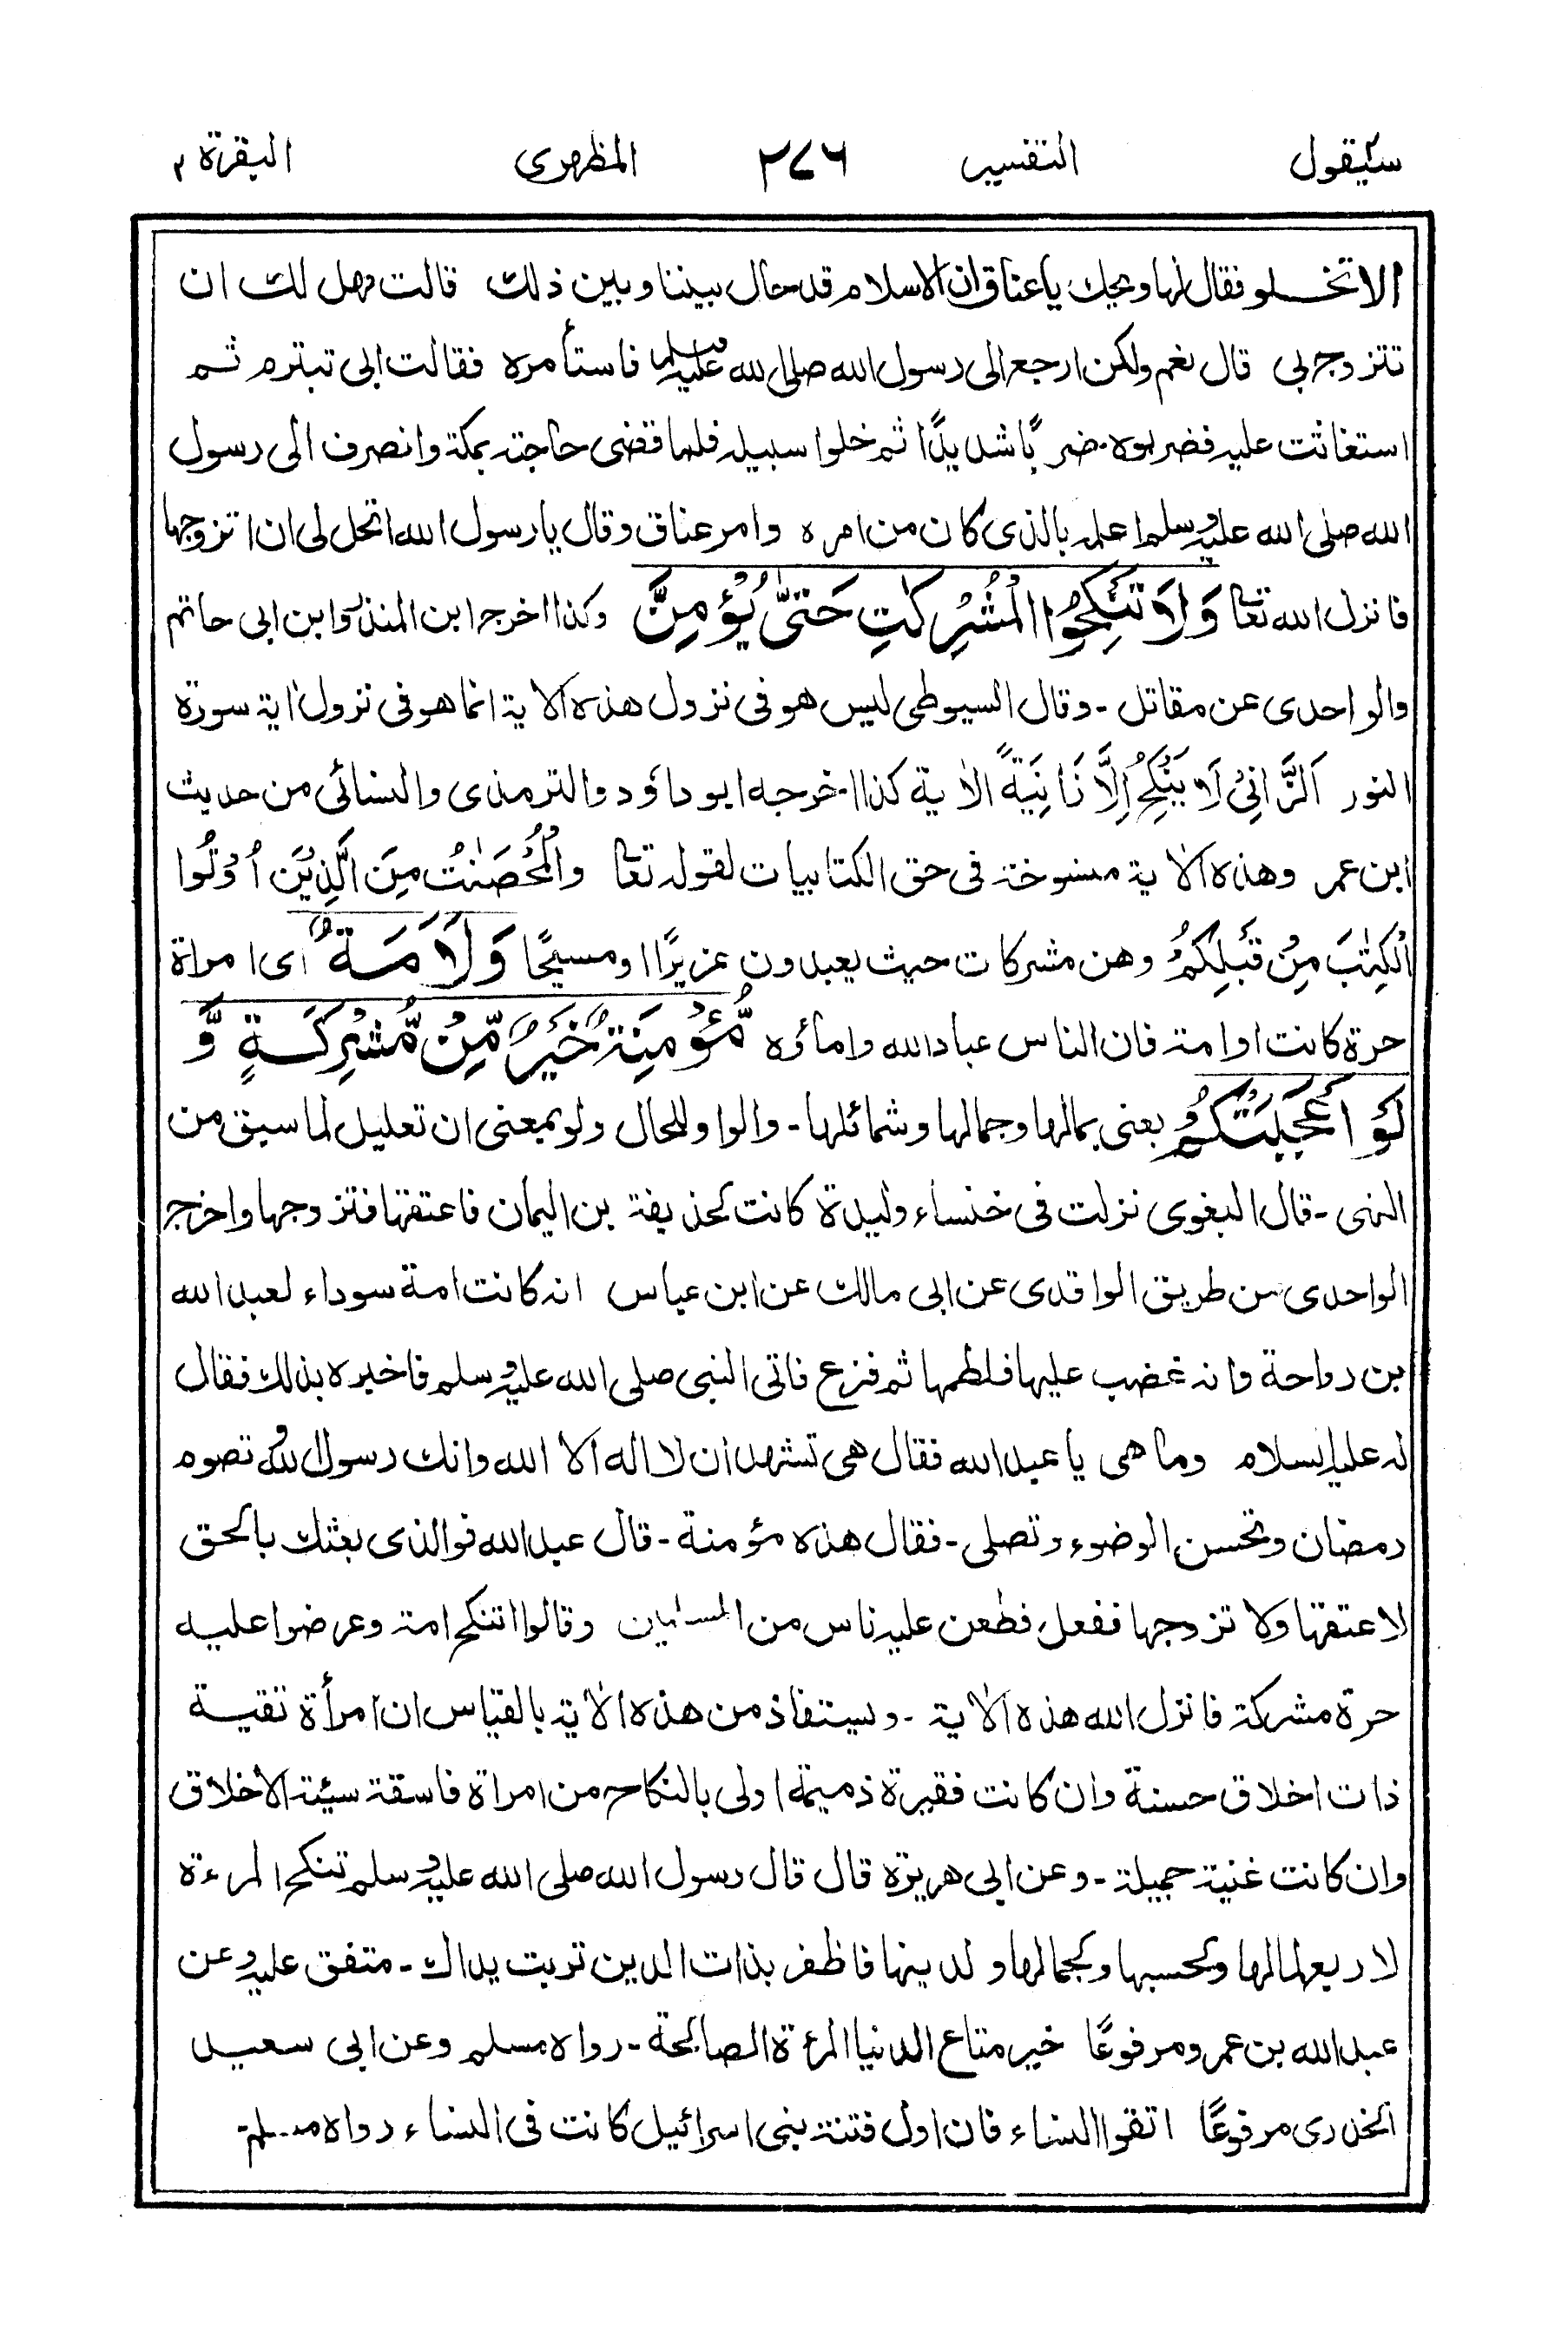 سيقول التفسير ٢٧٦ المظهرى البقرة ٢
الا تخلو فقال لها ويحك يا عناق ان الاسلام قد حال بيننا وبين ذلك قالت فهل لك ان
تتزوج بي قال نعم ولكن ارجع الى رسول الله صلى الله عليه وسلم فاستأمره فقالت ابى تبترم ثم
استغاثت عليه فضربوه ضربًا شديدًا ثم خلوا سبيله فلما قضى حاجته بمكة وانصرف الى رسول
الله صلى الله عليه وسلم اعلمه بالذى كان من امره وامر عناق وقال يا رسول الله اتحل لى ان اتزوجها
فانزل الله تعالى وَلَا تَنْكِحُوا الْمُشْرِكٰتِ حَتّٰى يُؤْمِنَّ وكذا اخرجه ابن المنذر وابن ابى حاتم
والواحدى عن مقاتل - وقال السيوطى ليس هو فى نزول هذه الاية انما هو فى نزول اية سورة
النور اَلزَّانِىْ لَا يَنْكِحُ اِلَّا زَانِيَةً الاية كذا اخرجه ابو داؤد والترمذى والنسائى من حديث
ابن عمر وهذه الاية منسوخة فى حق الكتابيات لقوله تعالى وَالْمُحْصَنٰتُ مِنَ الَّذِيْنَ اُوْتُوا
الْكِتٰبَ مِنْ قَبْلِكُمْ وهن مشركات حيث يعبدون عزيرًا او مسيحًا وَلَاَمَةٌ اى امراة
حرة كانت او امة فان الناس عباد الله واماؤه مُّؤْمِنَةٌ خَيْرٌ مِّنْ مُّشْرِكَةٍ وَّ
لَوْ اَعْجَبَتْكُمْ يعنى بمالها وجمالها وشمائلها - والواو للحال ولو بمعنى ان تعليل لما سبق من
النهى - قال البغوى نزلت فى خنساء وليدة كانت لحذيفة بن اليمان فاعتقها فتزوجها واخرج
الواحدى من طريق الواقدى عن ابى مالك عن ابن عباس انه كانت امة سوداء لعبد الله
بن رواحة وانه غضب عليها فلطمها ثم فزع فاتى النبى صلى الله عليه وسلم فاخبره بذلك فقال
له عليه السلام وما هى يا عبد الله فقال هى تشهد ان لا اله الا الله وانك رسول الله وتصوم
رمضان وتحسن الوضوء وتصلى - فقال هذه مؤمنة - قال عبد الله فوالذى بعثك بالحق
لاعتقنها ولا تزوجها ففعل فطعن عليه ناس من المسلمين وقالوا اتنكح امة وعرضوا عليه
حرة مشركة فانزل الله هذه الاية - ويستفاد من هذه الاية بالقياس ان امرأة تقية
ذات اخلاق حسنة وان كانت فقيرة ذميمة اولى بالنكاح من امراة فاسقة سيئة الاخلاق
وان كانت غنية جميلة - وعن ابى هريرة قال قال رسول الله صلى الله عليه وسلم تنكح المرءة
لاربع لمالها ولحسبها ولجمالها ولدينها فاظفر بذات الدين تربت يداك - متفق عليه وعن
عبد الله بن عمرو مرفوعًا خير متاع الدنيا المرءة الصالحة - رواه مسلم وعن ابى سعيد
الخدرى مرفوعًا اتقوا النساء فان اول فتنة بنى اسرائيل كانت فى النساء رواه مسلم -